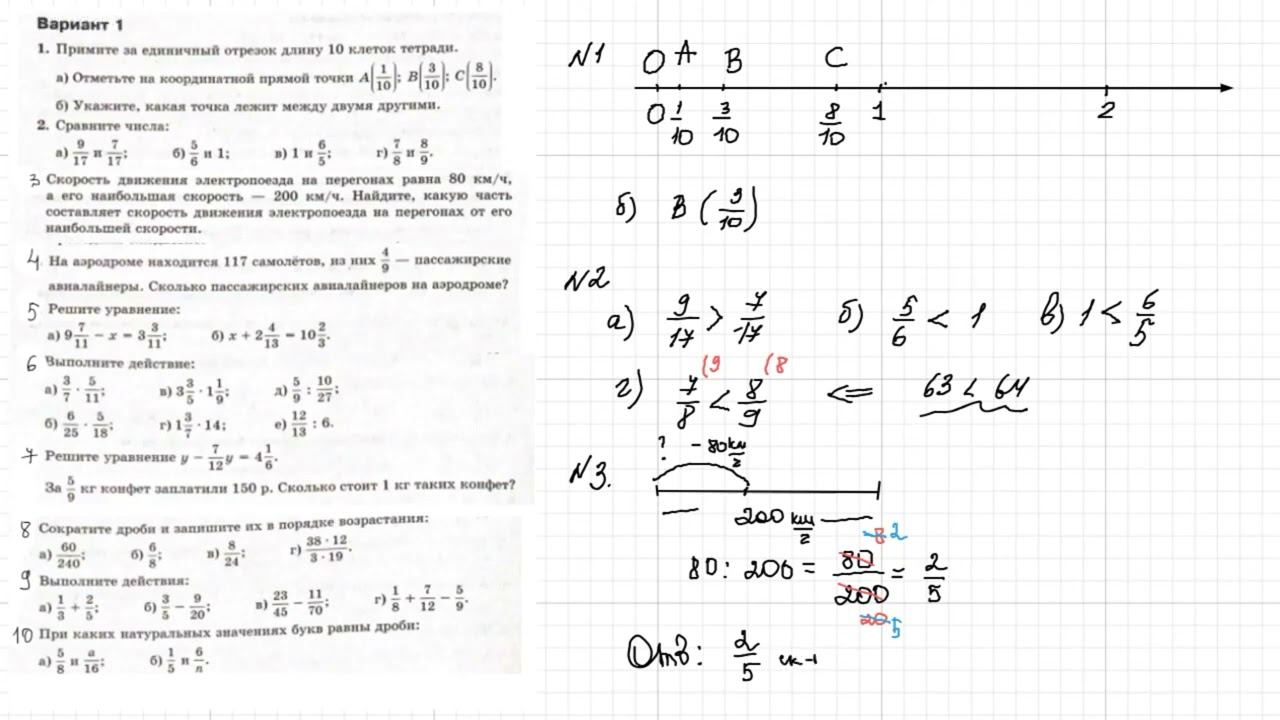 Вариант 1
1. Примите за единичный отрезок длину 10 клеток тетради.
а) Отметьте на координатной прямой точки A(1/10); B(3/10); C(8/10).
б) Укажите, какая точка лежит между двумя другими.
2. Сравните числа:
а) 9/17 и 7/17; б) 5/6 и 1; в) 1 и 6/5; г) 7/8 и 8/9.
3 Скорость движения электропоезда на перегонах равна 80 км/ч,
а его наибольшая скорость — 200 км/ч. Найдите, какую часть
составляет скорость движения электропоезда на перегонах от его
наибольшей скорости.
4 На аэродроме находится 117 самолётов, из них 4/9 — пассажирские
авиалайнеры. Сколько пассажирских авиалайнеров на аэродроме?
5 Решите уравнение:
а) 9 7/11 − x = 3 3/11; б) x + 2 4/13 = 10 2/3.
6 Выполните действие:
а) 3/7 · 5/11; в) 3 3/5 · 1 1/9; д) 5/9 : 10/27;
б) 6/25 · 5/18; г) 1 3/7 · 14; е) 12/13 : 6.
7 Решите уравнение y − 7/12 y = 4 1/6.
За 5/9 кг конфет заплатили 150 р. Сколько стоит 1 кг таких конфет?
8 Сократите дроби и запишите их в порядке возрастания:
а) 60/240; б) 6/8; в) 8/24; г) 38 · 12/3 · 19.
9 Выполните действия:
а) 1/3 + 2/5; б) 3/5 − 9/20; в) 23/45 − 11/70; г) 1/8 + 7/12 − 5/9.
10 При каких натуральных значениях букв равны дроби:
а) 5/8 и a/16; б) 1/5 и 6/n.
№1 O A B C
0 1/10 3/10 8/10 1 2
б) B (3/10)
№2
а) 9/17 > 7/17 б) 5/6 < 1 в) 1 < 6/5
(9 (8
г) 7/8 < 8/9 <= 63 < 64
? – 80 км/ч
№3.
200 км/ч
8 2
80 : 200 = 80/200 = 2/5
20 5
Отв: 2/5 ск-и